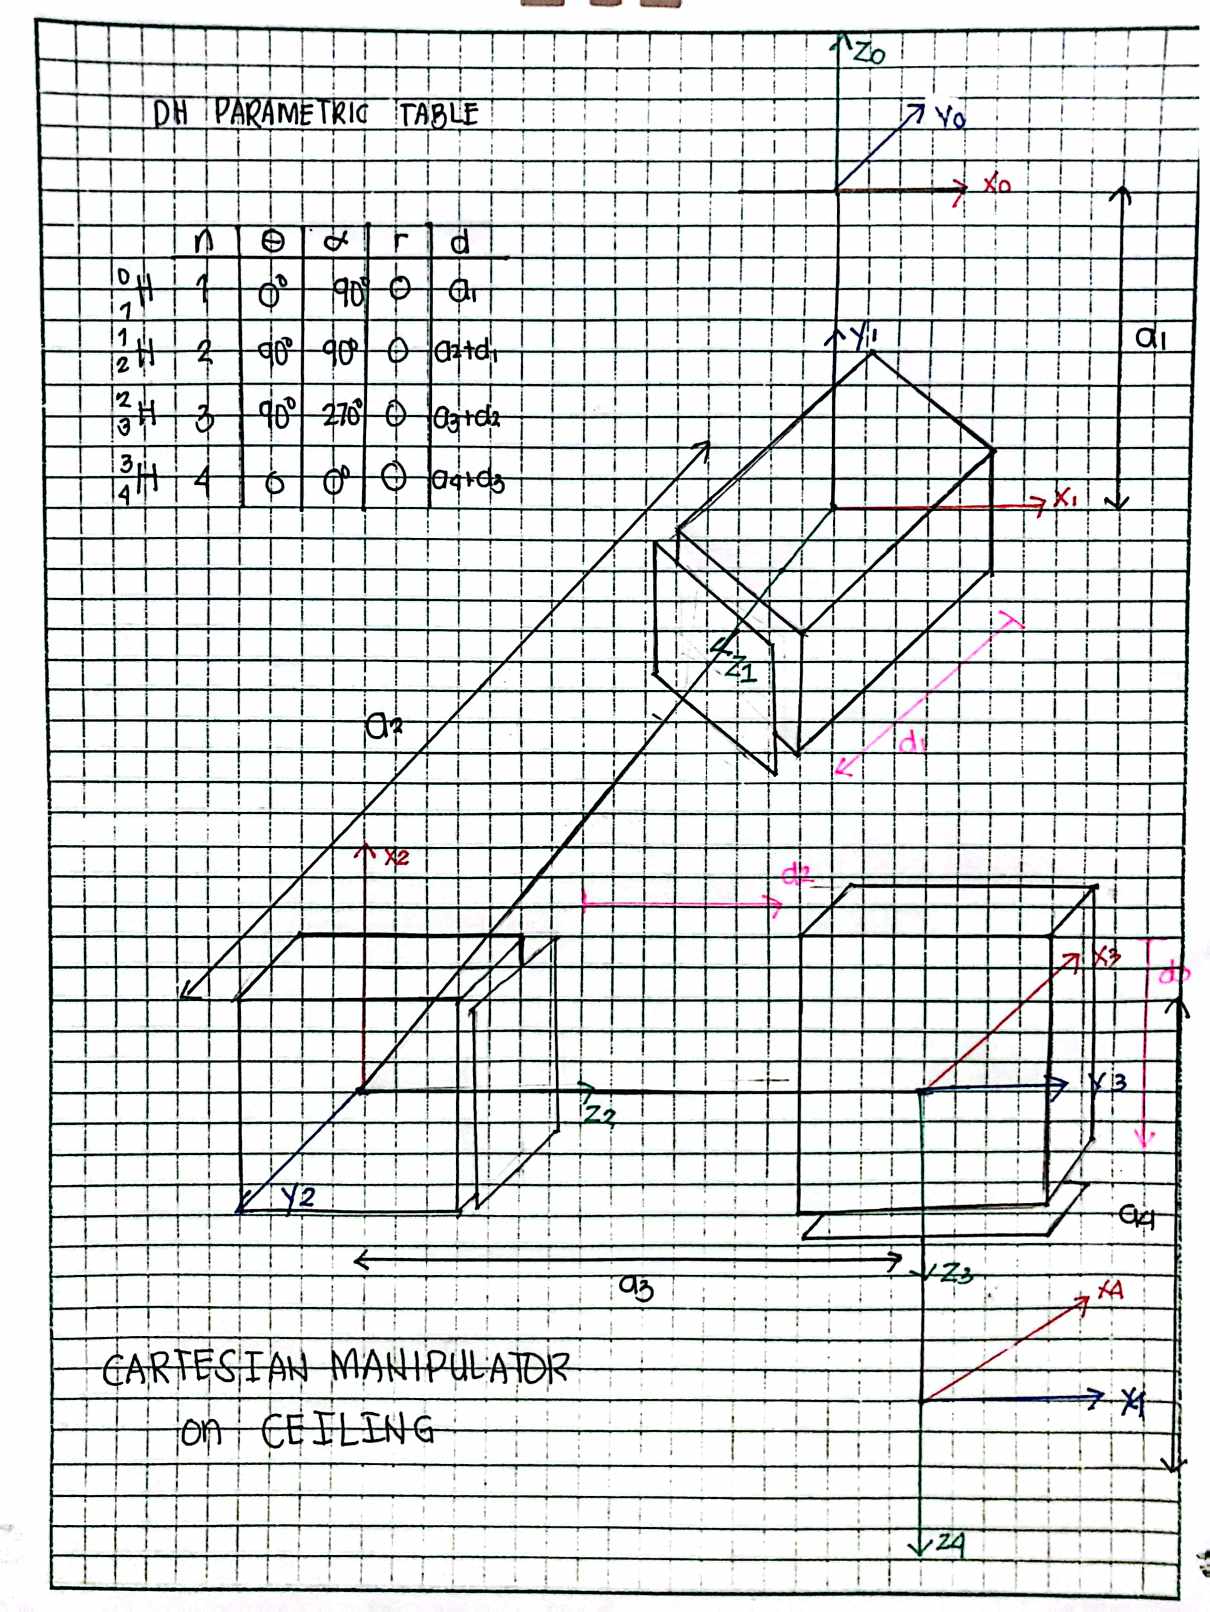 DH PARAMETRIC TABLE
n θ α r d
0 1 H 1 0° 90° 0 a1
1 2 H 2 90° 90° 0 a2+d1
2 3 H 3 90° 270° 0 a3+d2
3 4 H 4 0 0° 0 a4+d3
Z0
Y0
X0
a1
Y1
X1
Z1
d1
a2
X2
d2
X3
d3
Y3
Z2
Y2
a4
Z3
a3
X4
CARTESIAN MANIPULATOR
on CEILING
Y4
Z4